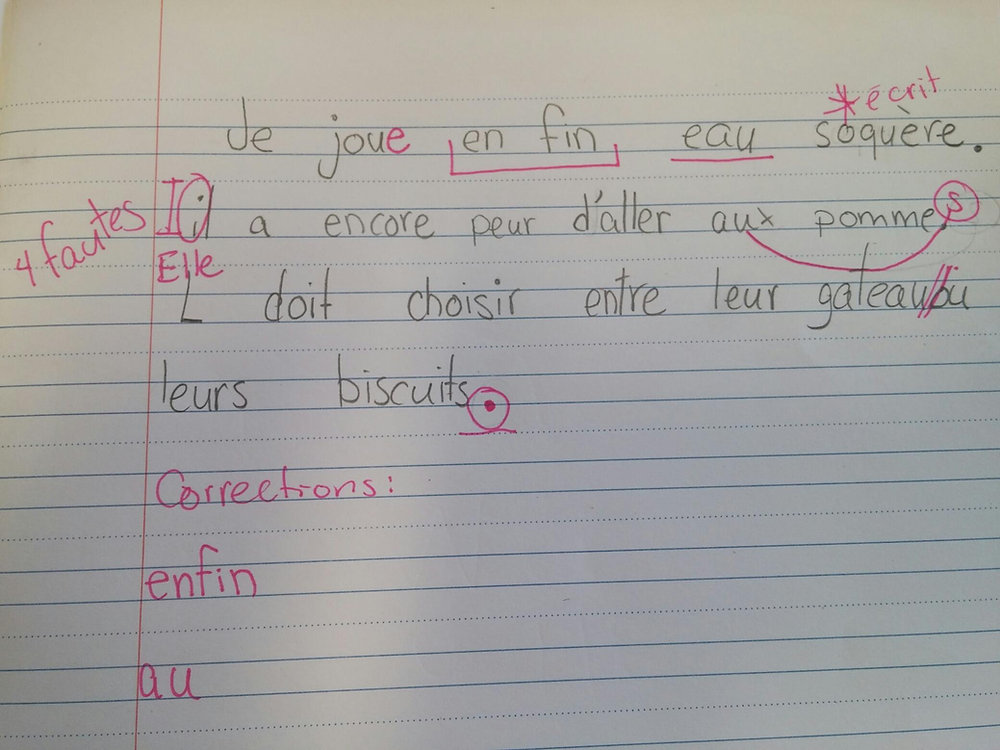 *écrit
Je joue en fin eau soquère.
4 fautes Il a encore peur d'aller aux pommes
Elle
L doit choisir entre leur gateau/ou
leurs biscuits.
Corrections:
enfin
au